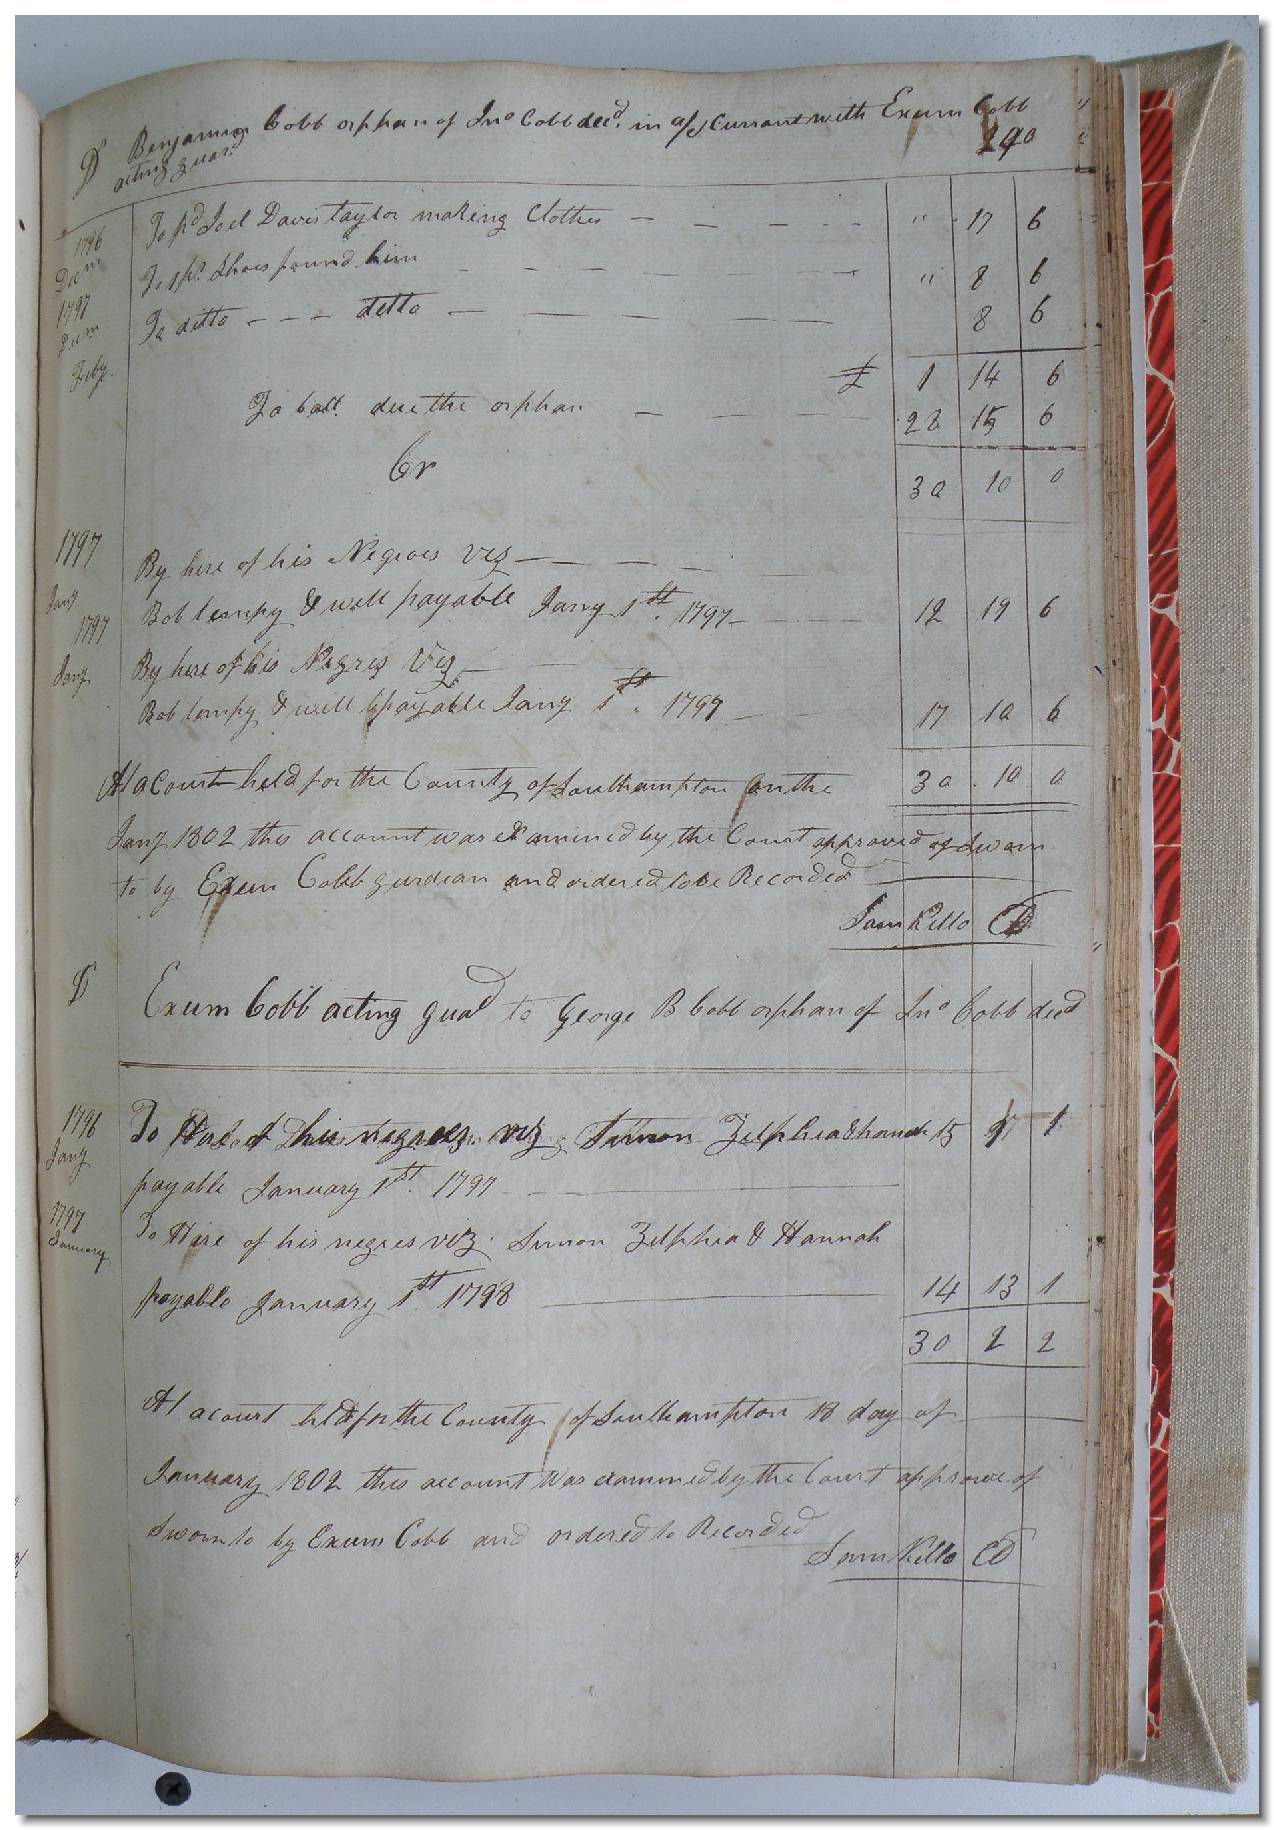 Dr Benjamin Cobb orphan of Jno Cobb decd. in a/c Currant with Exum Cobb
acting guard 290
1796 Decm To pd Joel Davis taylor making Clothes — — — " 17 6
1797 Decm To 1 pr. Shoes found him — — — " 8 6
Feby. To ditto — — — detto — — — 8 6
£ 1 14 6
To ball. due the orphan — — — 28 15 6
Cr 30 10 0
1797 By hire of his Negroes viz — — — —
Jany Bob tempy & will payable Jany 1st. 1797 — 12 19 6
1797
Jany By hire of his Negres Viz — —
Bob tempy & will payable Jany 1st. 1797 — 17 10 6
At a Court held for the County of Southampton on the 30 10 0
Jany 1802 this account was examined by the Court approved of Sworn
to by Exum Cobb gurdian and ordered to be Recorded
Sam Kello CD
Dr Exum Cobb acting guad to George B Cobb orphan of Jno Cobb decd
1796 Jany To Hire of his negroes viz Simon Zelphia & hanah 15 9 1
payable January 1st. 1797
1797 January To Hire of his negres viz. Simon Zelphia & Hannah
payable January 1st 1798 — 14 13 1
30 2 2
At a court held for the County of Southampton 18 day of
January 1802 this account was examined by the Court approve of
Sworn to by Exum Cobb and ordered to Recorded
Sam Kello CD